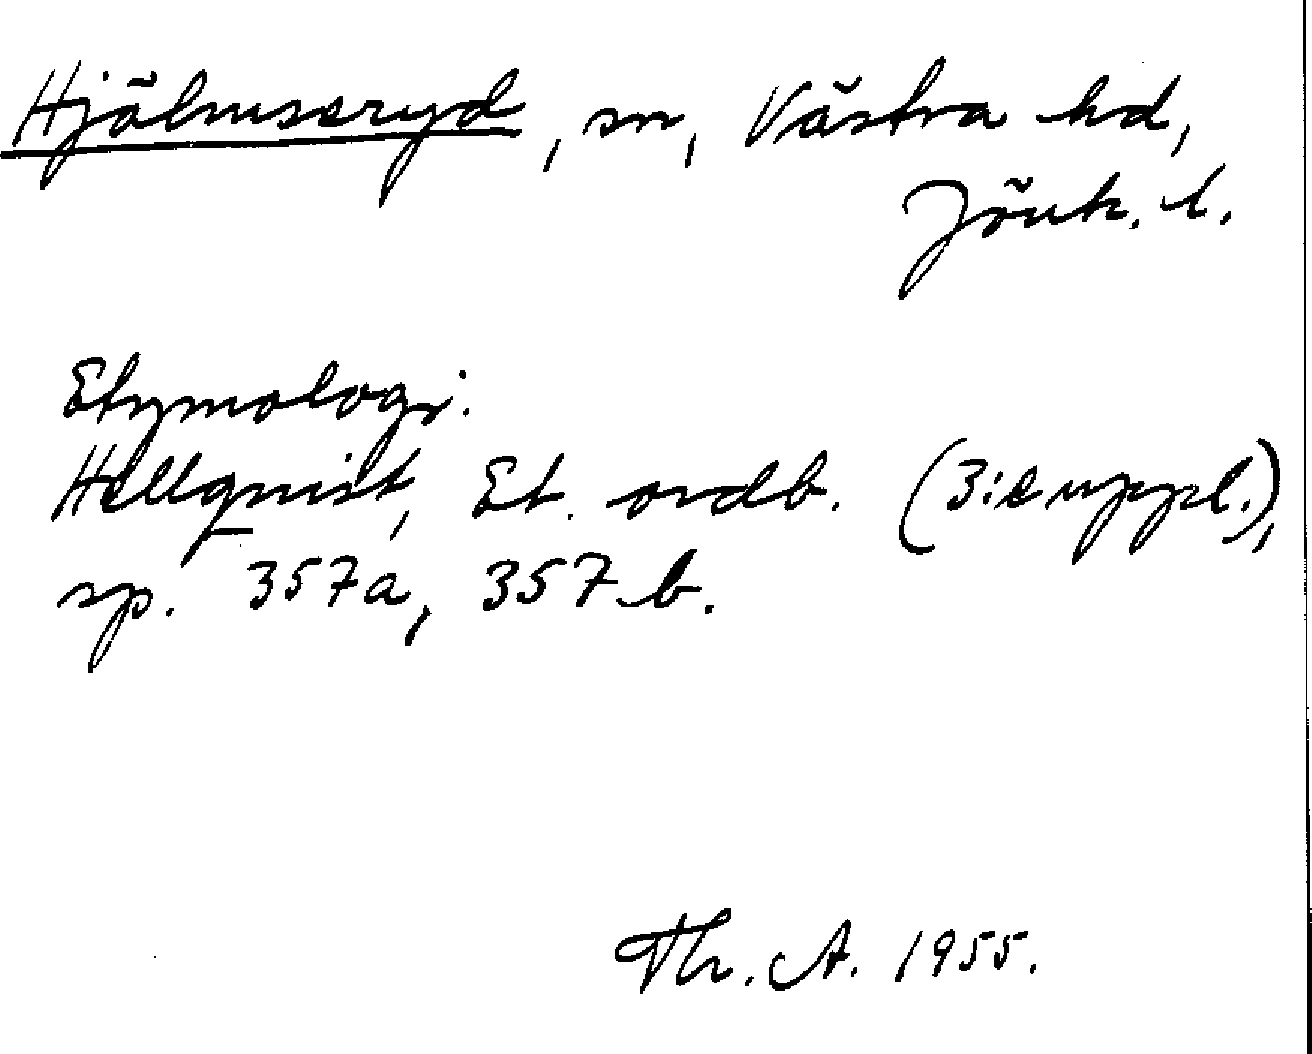 Hjälmseryd, sn, Västra hd,
Jönk. l.
Etymologi.
Hellquist, Et. ordb. (3:e uppl.),
sp. 357a, 357b.
Th. A. 1955.